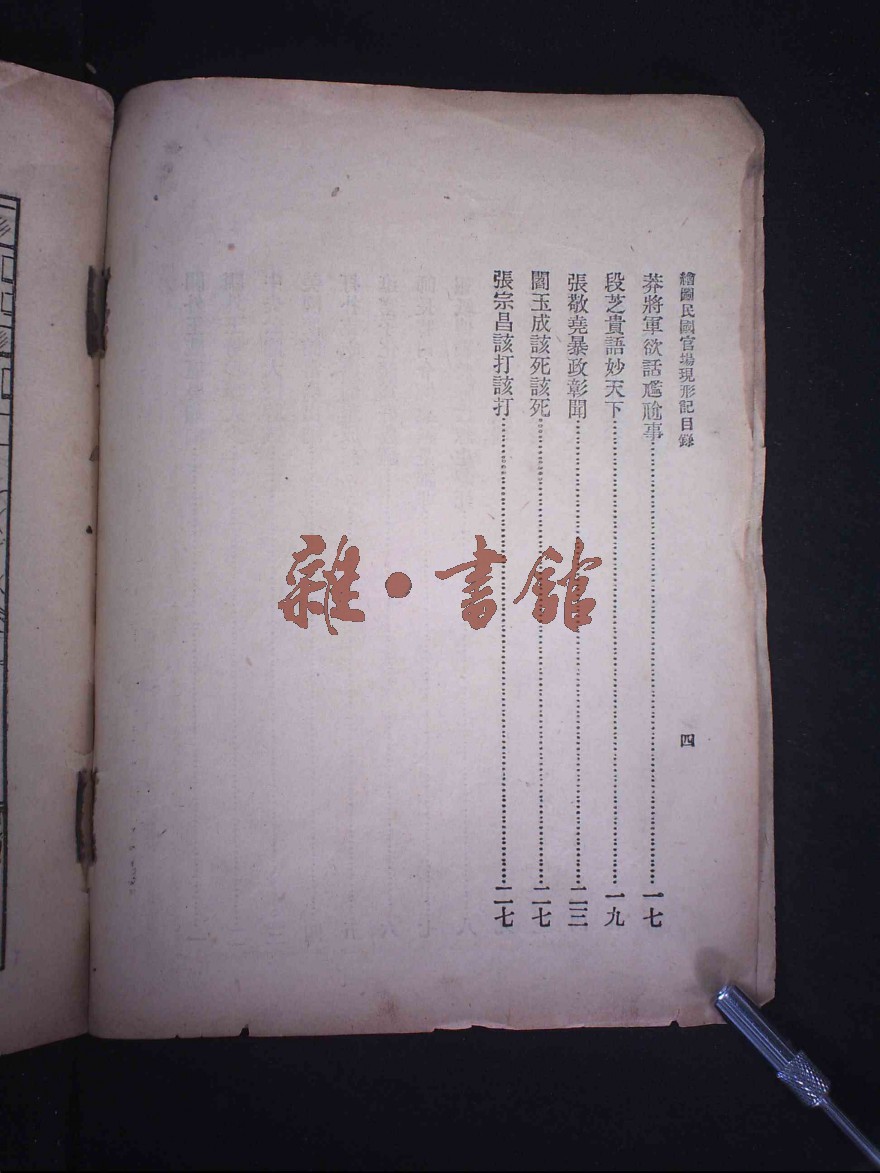 繪圖民國官場現形記目錄
四
莽將軍欲話尷尬事……一七
段芝貴語妙天下……一九
張敬堯暴政彰聞……二三
閻玉成該死該死……二七
張宗昌該打該打……二七
雜·書館